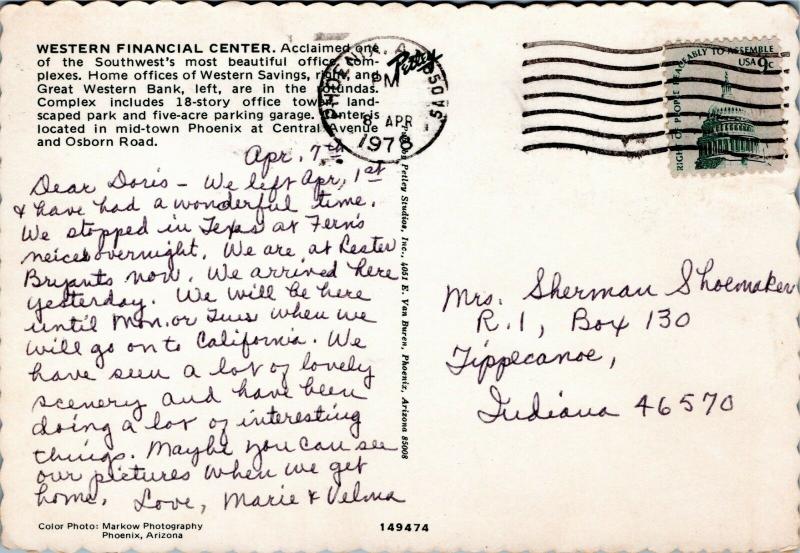 WESTERN FINANCIAL CENTER. Acclaimed one
of the Southwest's most beautiful office com-
plexes. Home offices of Western Savings, right, and
Great Western Bank, left, are in the rotundas.
Complex includes 18-story office tower, land-
scaped park and five-acre parking garage. Center is
located in mid-town Phoenix at Central Avenue
and Osborn Road.
Petley
PHOENIX, A
PM
8 APR
1978
850
USA
RIGHT OF PEOPLE PEACEABLY TO ASSEMBLE
USA 9c
Apr. 7th
Dear Doris – We left Apr, 1st
& have had a wonderful time.
We stopped in Texas at Fern's
neices overnight. We are at Lester
Bryants now. We arrived here
yesterday. We will be here
until Mon. or Tues when we
will go on to California. We
have seen a lot of lovely
scenery and have been
doing a lot of interesting
things. Maybe you can see
our pictures when we get
home. Love, Marie & Velma
Petley Studios, Inc., 4051 E. Van Buren, Phoenix, Arizona 85008
Mrs. Sherman Shoemaker
R.1, Box 130
Tippecanoe,
Indiana 46570
Color Photo: Markow Photography
Phoenix, Arizona
149474